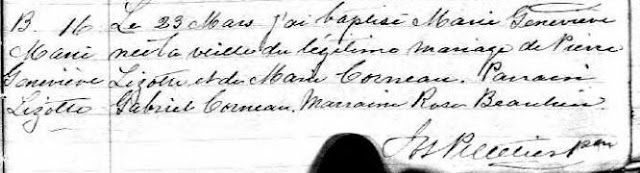 B. 16 Le 23 Mars j'ai baptisé Marie Geneviève
Marie née la veille du légitime mariage de Pierre
Geneviève Lizotte et de Marie Corneau. Parrain
Lizotte Gabriel Corneau. Marraine Rose Beaulieu.
Jos Pelletier